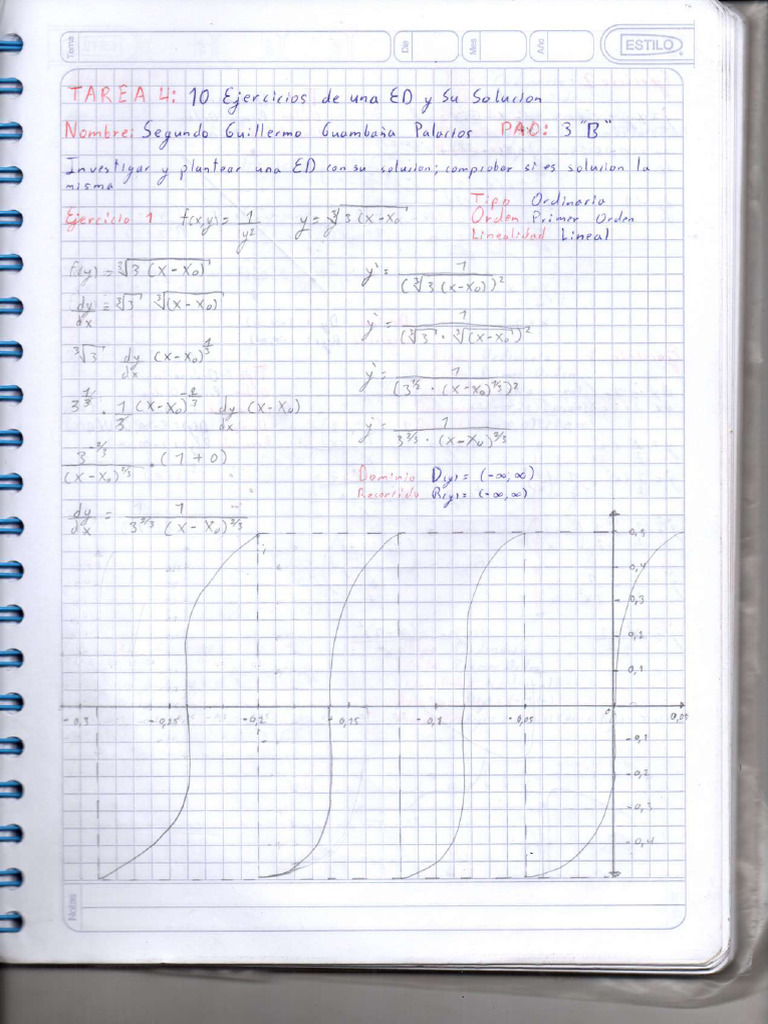 Tema De Mes Año ESTILO
TAREA 4: 10 Ejercicios de una ED y Su Solucion
Nombre: Segundo Guillermo Guambaña Palacios PAO: 3 "B"
Investigar y plantear una ED con su solucion; comprobar si es solucion la
misma
Tipo Ordinaria
Ejercicio 1 f(x,y) = 1/y² y = ∛3(x-x₀)
Orden Primer Orden
Linealidad Lineal
f(y) = ∛3(x-x₀)
dy/dx = ∛3 ∛(x-x₀)
∛3 dy/dx (x-x₀)^1/3
3^1/3 · 1/3 (x-x₀)^-2/3 dy/dx (x-x₀)
3^-2/3/(x-x₀)^2/3 · (1+0)
dy/dx = 1/3^2/3 (x-x₀)^2/3
y' = 1/(∛3(x-x₀))²
y' = 1/(∛3 · ∛(x-x₀))²
y' = 1/(3^1/2 · (x-x₀)^1/3)²
y' = 1/3^2/3 · (x-x₀)^2/3
Dominio D(y) = (-∞,∞)
Recorrido R(y) = (-∞,∞)
0,5
0,4
0,3
0,2
0,1
-0,3 -0,25 -0,2 -0,15 -0,1 -0,05 0 0,05
-0,1
-0,2
-0,3
-0,4
Notas